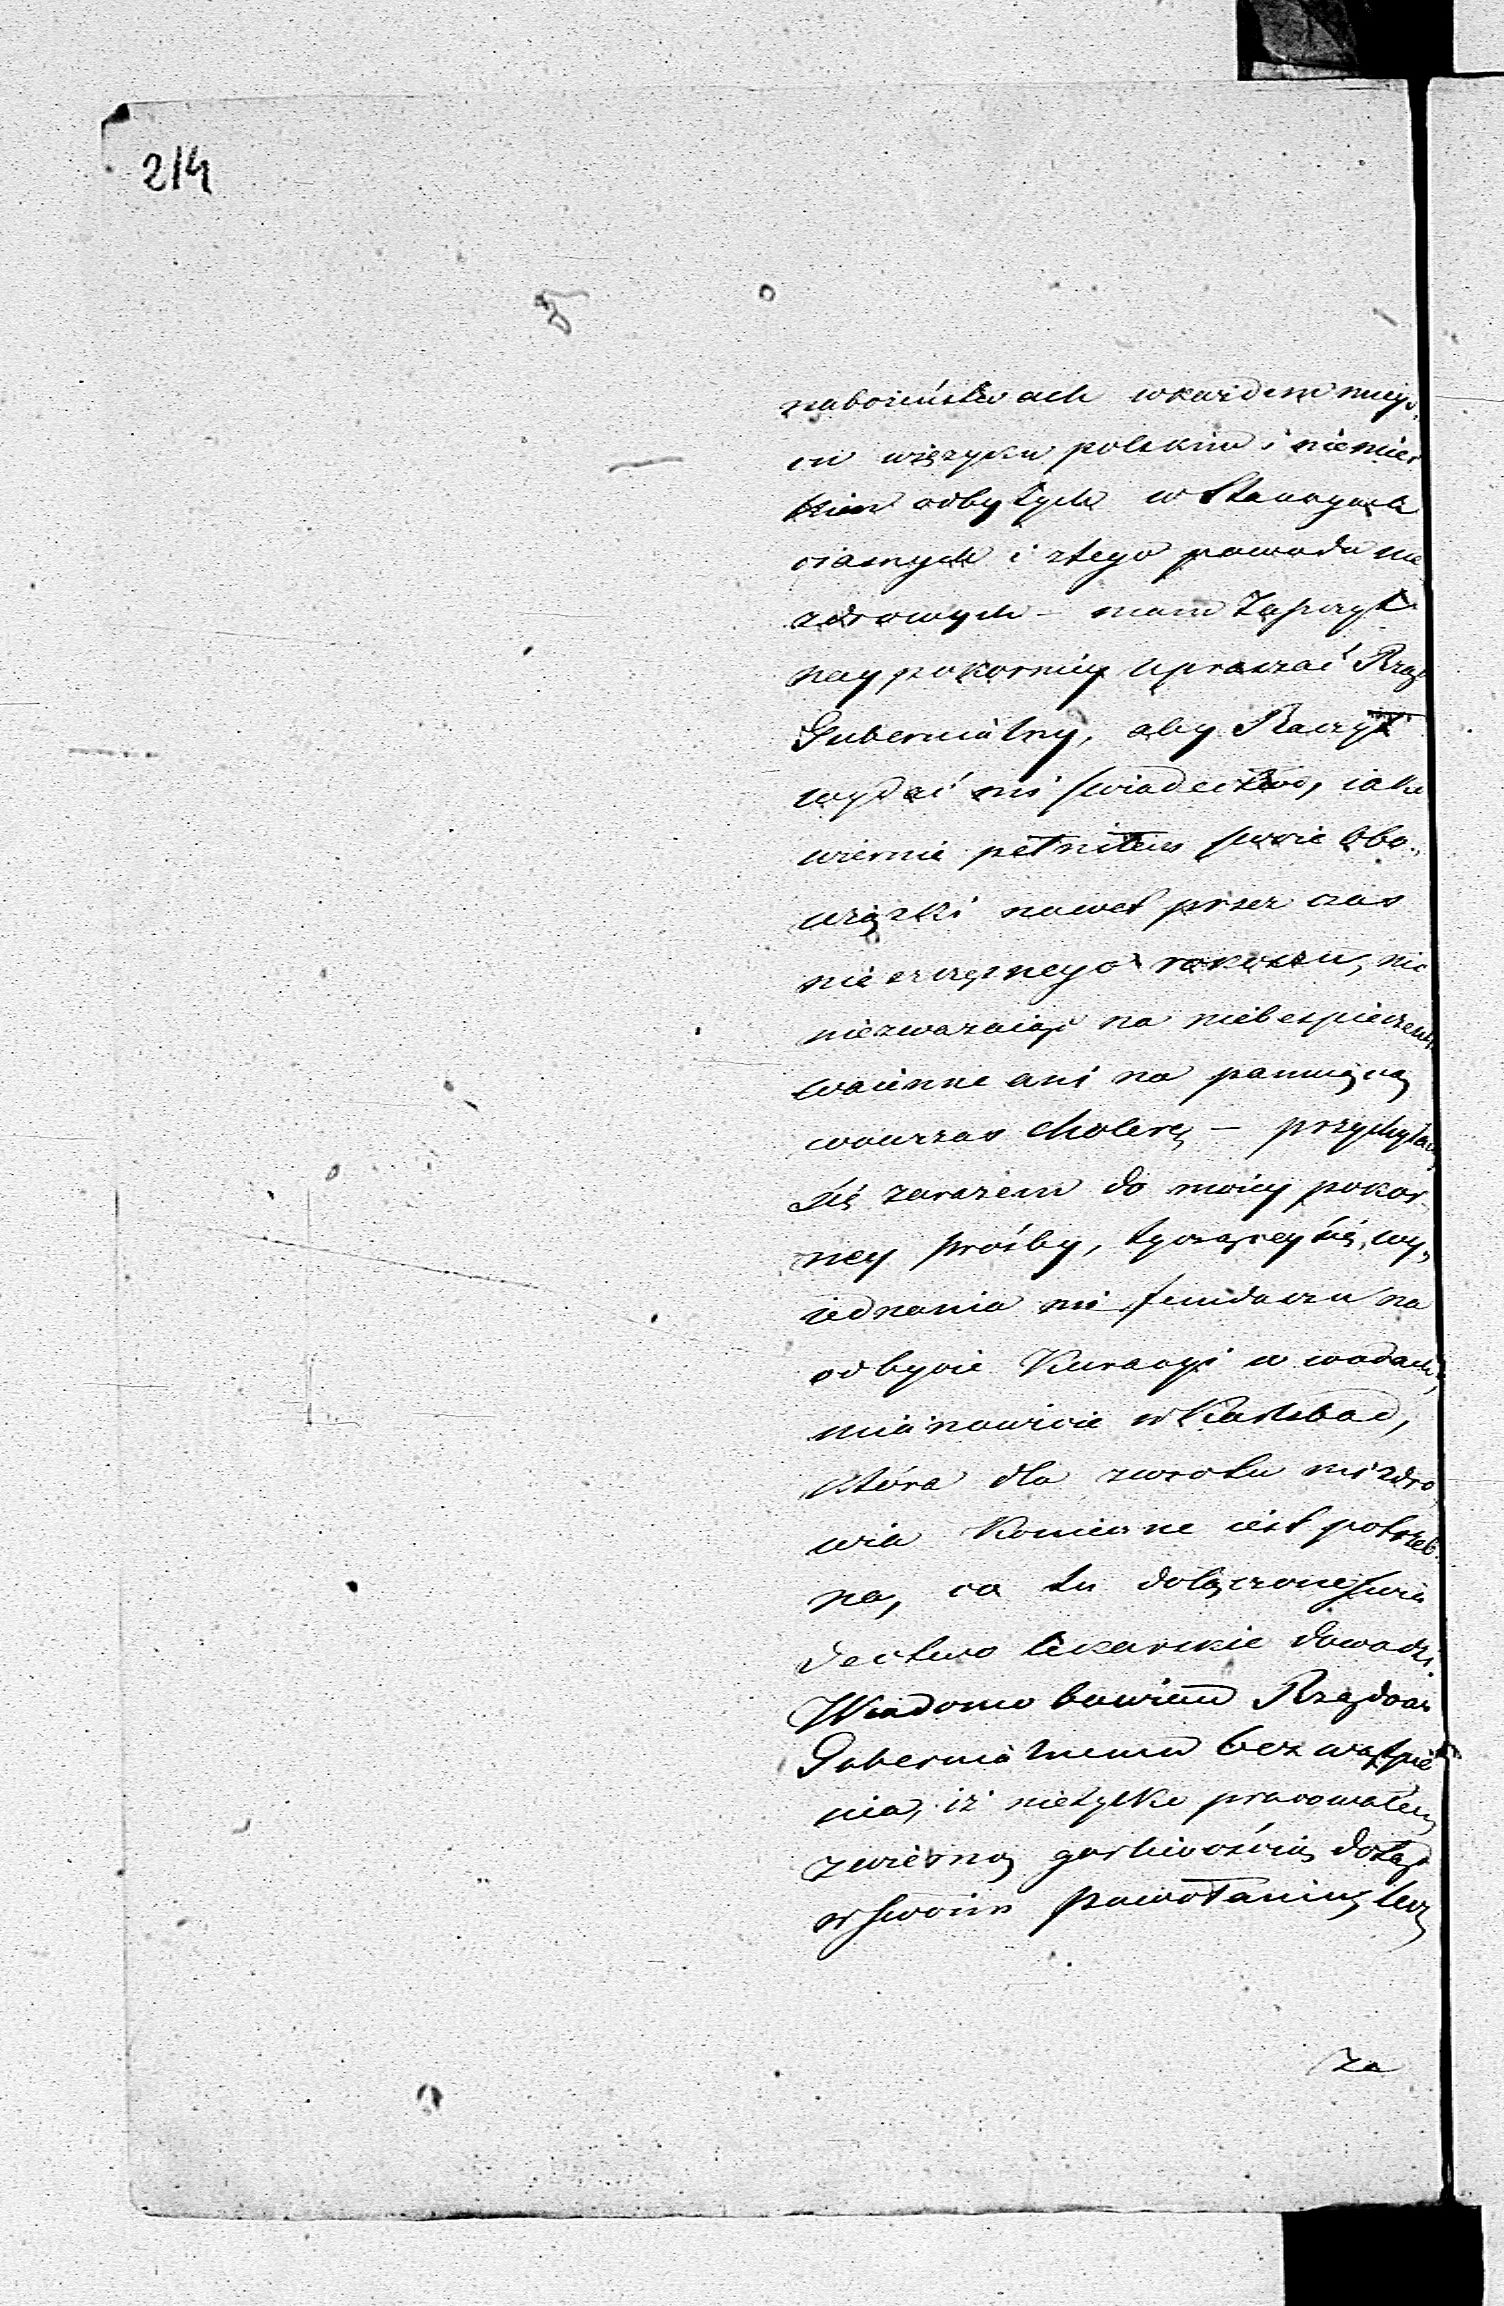 214
nabożeństwach wkażdem miejs,
cu więzyku polskim i niemiec
kim odbytych w Stancyach
ciasnych i ztego powodu nie
zdrowych – mam Zaszczyt
naypokorniey upraszać Rząd
Gubernialny, aby Raczył
wydać mi świadectwo, iako
wiernie pełniłem swoie obo„
wiązki nawet przez czas
nieszczęsnego rokoszu, nic
niezważaiąc na niebespieczeńs
woienne ani na panuiącą
wowczas cholerę – przychylaiąc
się zarazem do moiey pokor
ney prośby, tyczącey się, wy„
iednania mi funduszu na
odbycie Kuracyi w wodach,
mianowicie w Karlsbad,
która dla zwrotu mi zdro
wia koniecznie iest potrzeb„
na, co tu dołączone świa
dectwo lekarskie dowodzi.
Wiadomo bowiem Rządowi
Gubernialnemu bez wątpie
nia, iż nietylko pracowałem
zwierną gorliwością dotąd
w swoim powołaniu, lecz
za